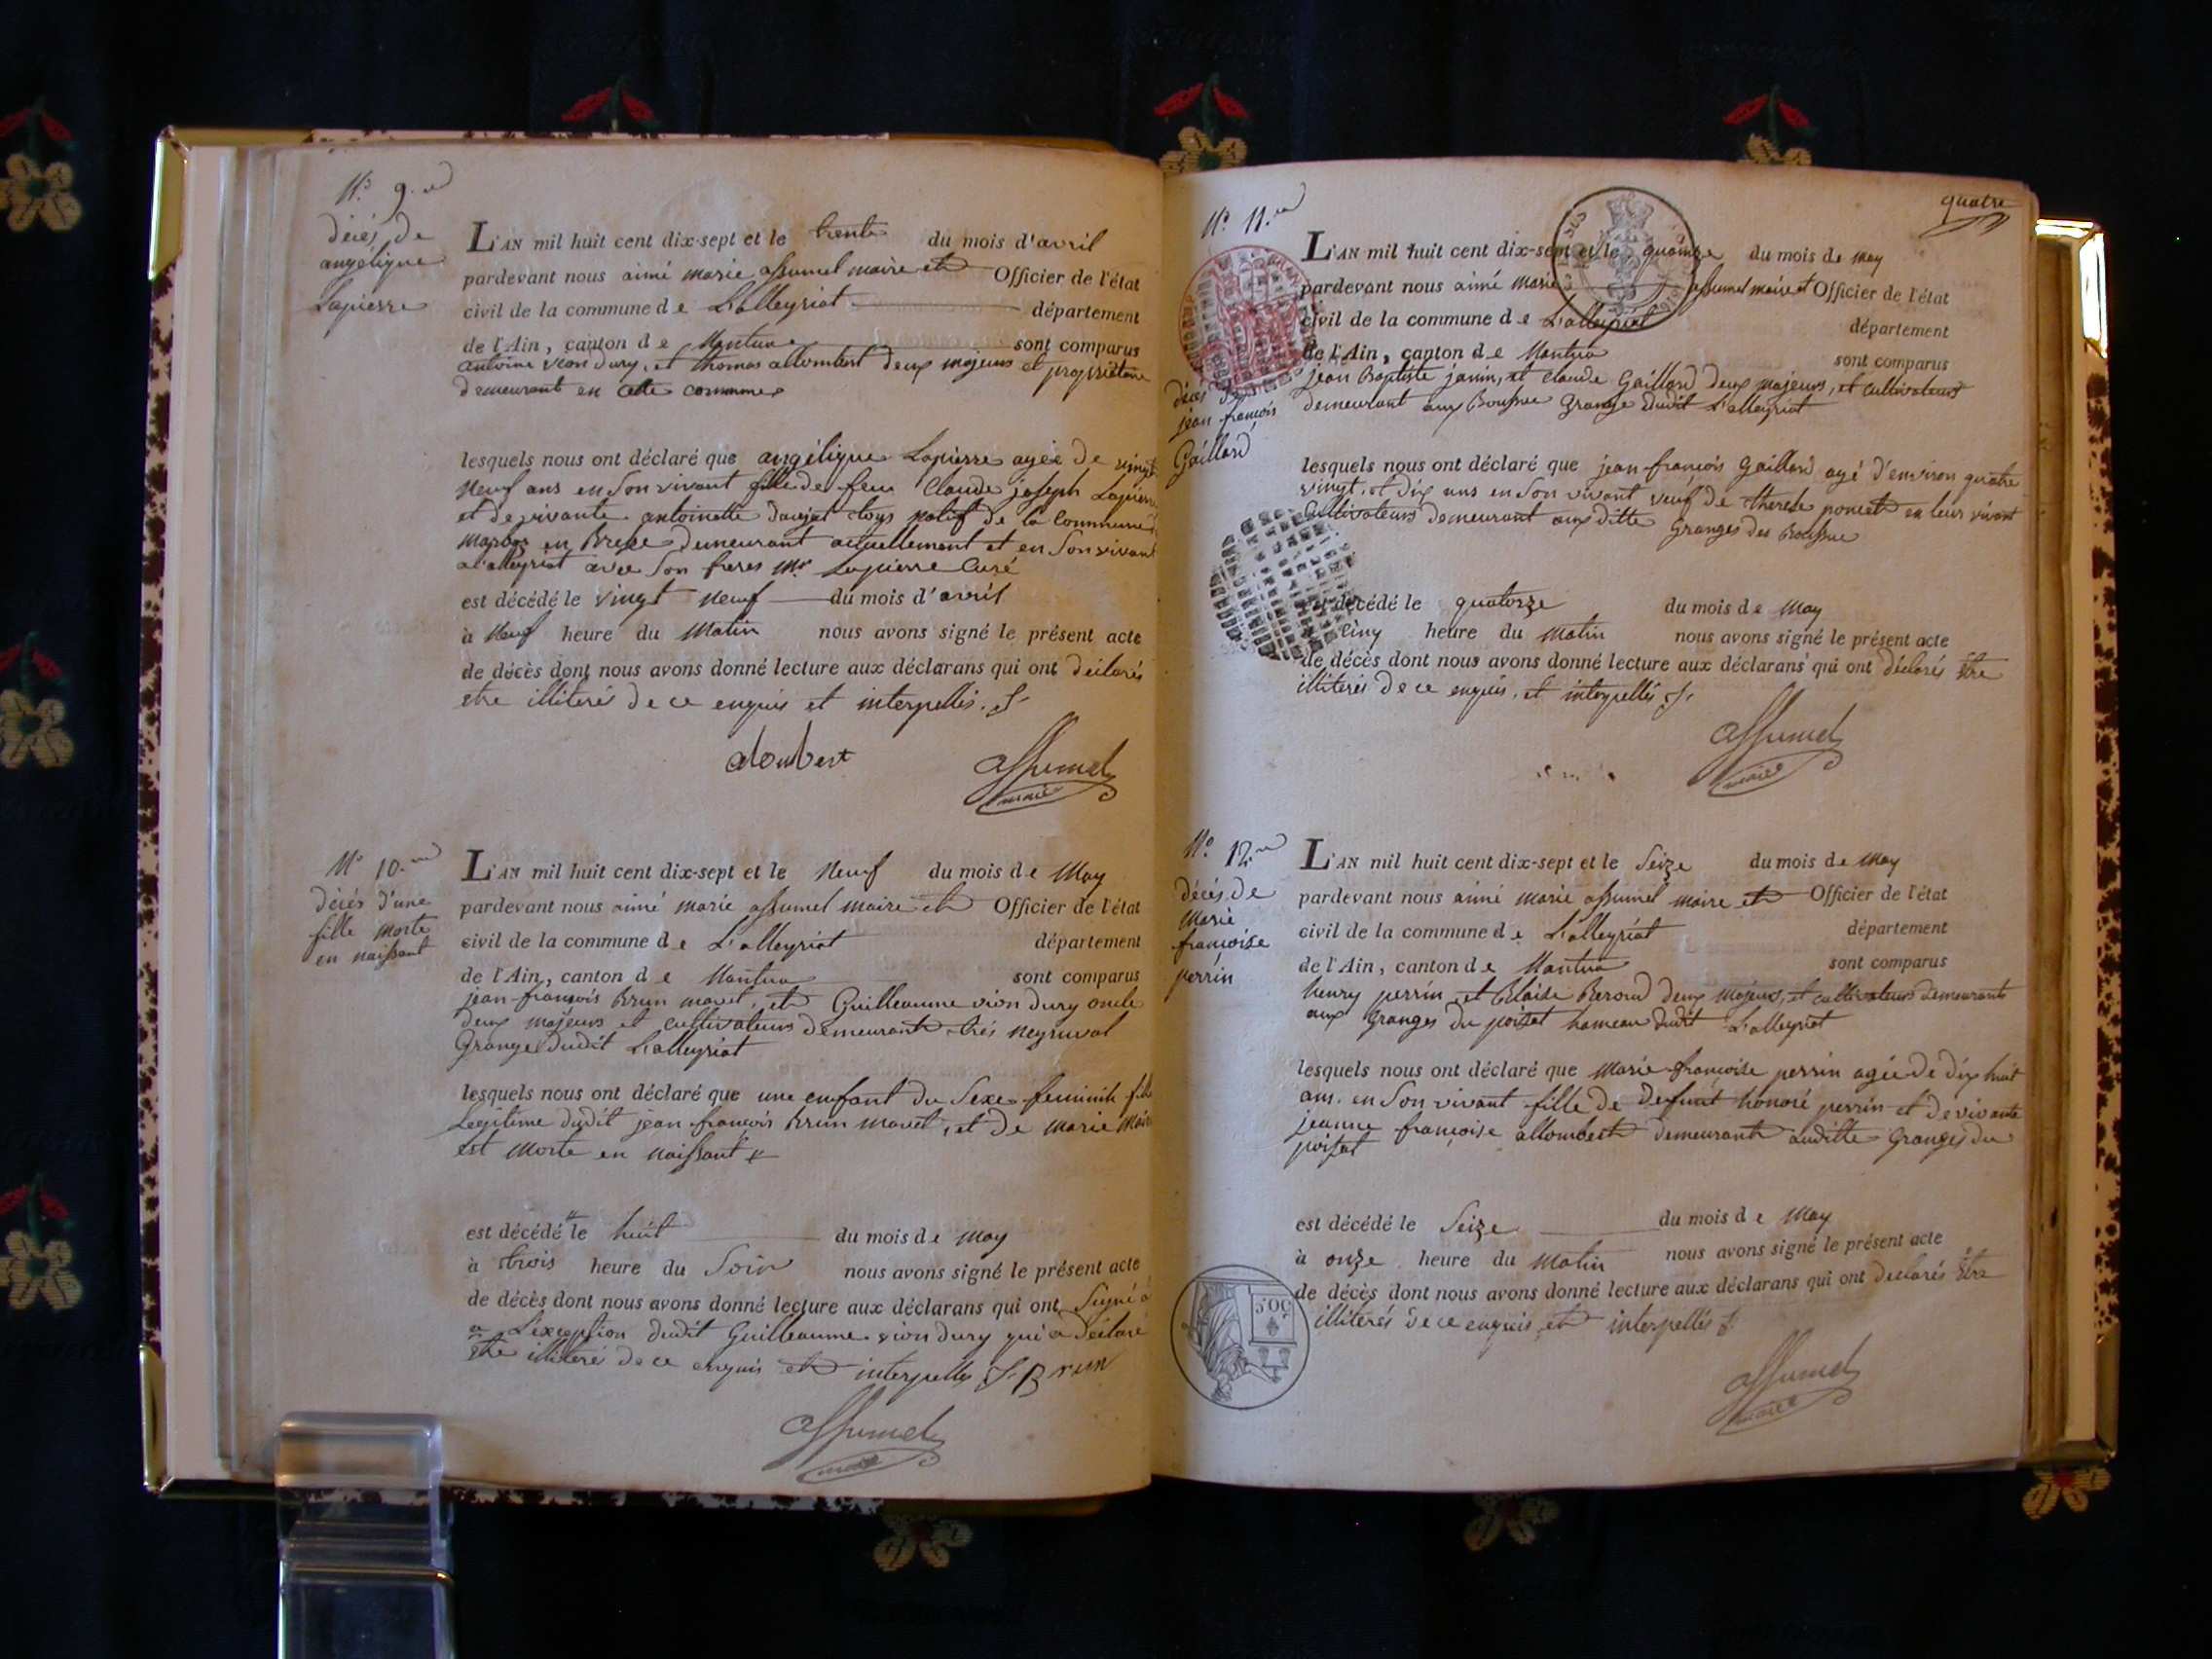 N.º 9.
décés de
angélique
Lapierre
L'AN mil huit cent dix-sept et le trente du mois d'avril
pardevant nous aimé marie assumel maire et Officier de l'état
civil de la commune de L'alleyriat département
de l'Ain, canton de Nantua sont comparus
antoine vion dury, et thomas allombert deux majeurs et propriétaire
demeurant en cette commune
lesquels nous ont déclaré que angélique Lapierre agée de vingt
neuf ans en son vivant fille de feu Claude joseph Lapierre
et de vivante antoinette natif de la Commune
en Bresse demeurant actuellement et en son vivant
a l'alleyriat avec son freres Mr. Lapierre Curé
est décédé le vingt neuf du mois d'avril
à neuf heure du matin nous avons signé le présent acte
de décès dont nous avons donné lecture aux déclarans qui ont déclarés
etre illiterés de ce enquis et interpellés.
aloubert assumel
maire
N.º 10.
décés d'une
fille morte
en naissant
L'AN mil huit cent dix-sept et le neuf du mois de may
pardevant nous aimé marie assumel maire et Officier de l'état
civil de la commune de L'alleyriat département
de l'Ain, canton de Nantua sont comparus
jean-françois Brun mavet, et Guilleaume vion dury oncle
deux majeurs et cultivateurs demeurant
Grange dudit L'alleyriat
lesquels nous ont déclaré que une enfant du sexe feminin fille
Legitime dudit jean françois Brun mavet, et de marie
est morte en naissant
est décédé le huit du mois de may
à trois heure du soir nous avons signé le présent acte
de décès dont nous avons donné lecture aux déclarans qui ont signé
a L'exception dudit Guilleaume vion dury qui a déclaré
etre illiteré de ce enquis et interpellés Brun
assumel
maire
quatre
N.º 11.
décés de
jean françois
Gaillard
L'AN mil huit cent dix-sept et le quinze du mois de may
pardevant nous aimé marie assumel maire et Officier de l'état
civil de la commune de L'alleyriat département
de l'Ain, canton de Nantua sont comparus
jean Baptiste janin, et claude Gaillard deux majeurs, et cultivateurs
demeurant aux grange dudit L'alleyriat
lesquels nous ont déclaré que jean françois Gaillard agé d'environ quatre
vingt et dix ans en son vivant veuf de therese poncet en leur vivant
Cultivateurs demeurant aux ditte Granges des
est décédé le quatorze du mois de may
cinq heure du matin nous avons signé le présent acte
de décès dont nous avons donné lecture aux déclarans qui ont déclarés être
illiterés de ce enquis, et interpellés
assumel
maire
N.º 12.
décés de
marie
françoise
perrin
L'AN mil huit cent dix-sept et le seize du mois de may
pardevant nous aimé marie assumel maire et Officier de l'état
civil de la commune de L'alleyriat département
de l'Ain, canton de Nantua sont comparus
henry perrin, et Blaise Beroud deux majeurs, et cultivateurs demeurants
aux Granges du poizat hameau dudit L'alleyriat
lesquels nous ont déclaré que marie françoise perrin agée de dix huit
ans. en son vivant fille de defunt honoré perrin et de vivante
jeanne françoise allombert demeurant auditte Granges du
poizat
est décédé le seize du mois de may
à onze heure du matin nous avons signé le présent acte
de décès dont nous avons donné lecture aux déclarans qui ont declarés être
illiterés de ce enquis, et interpellés
50C
assumel
maire